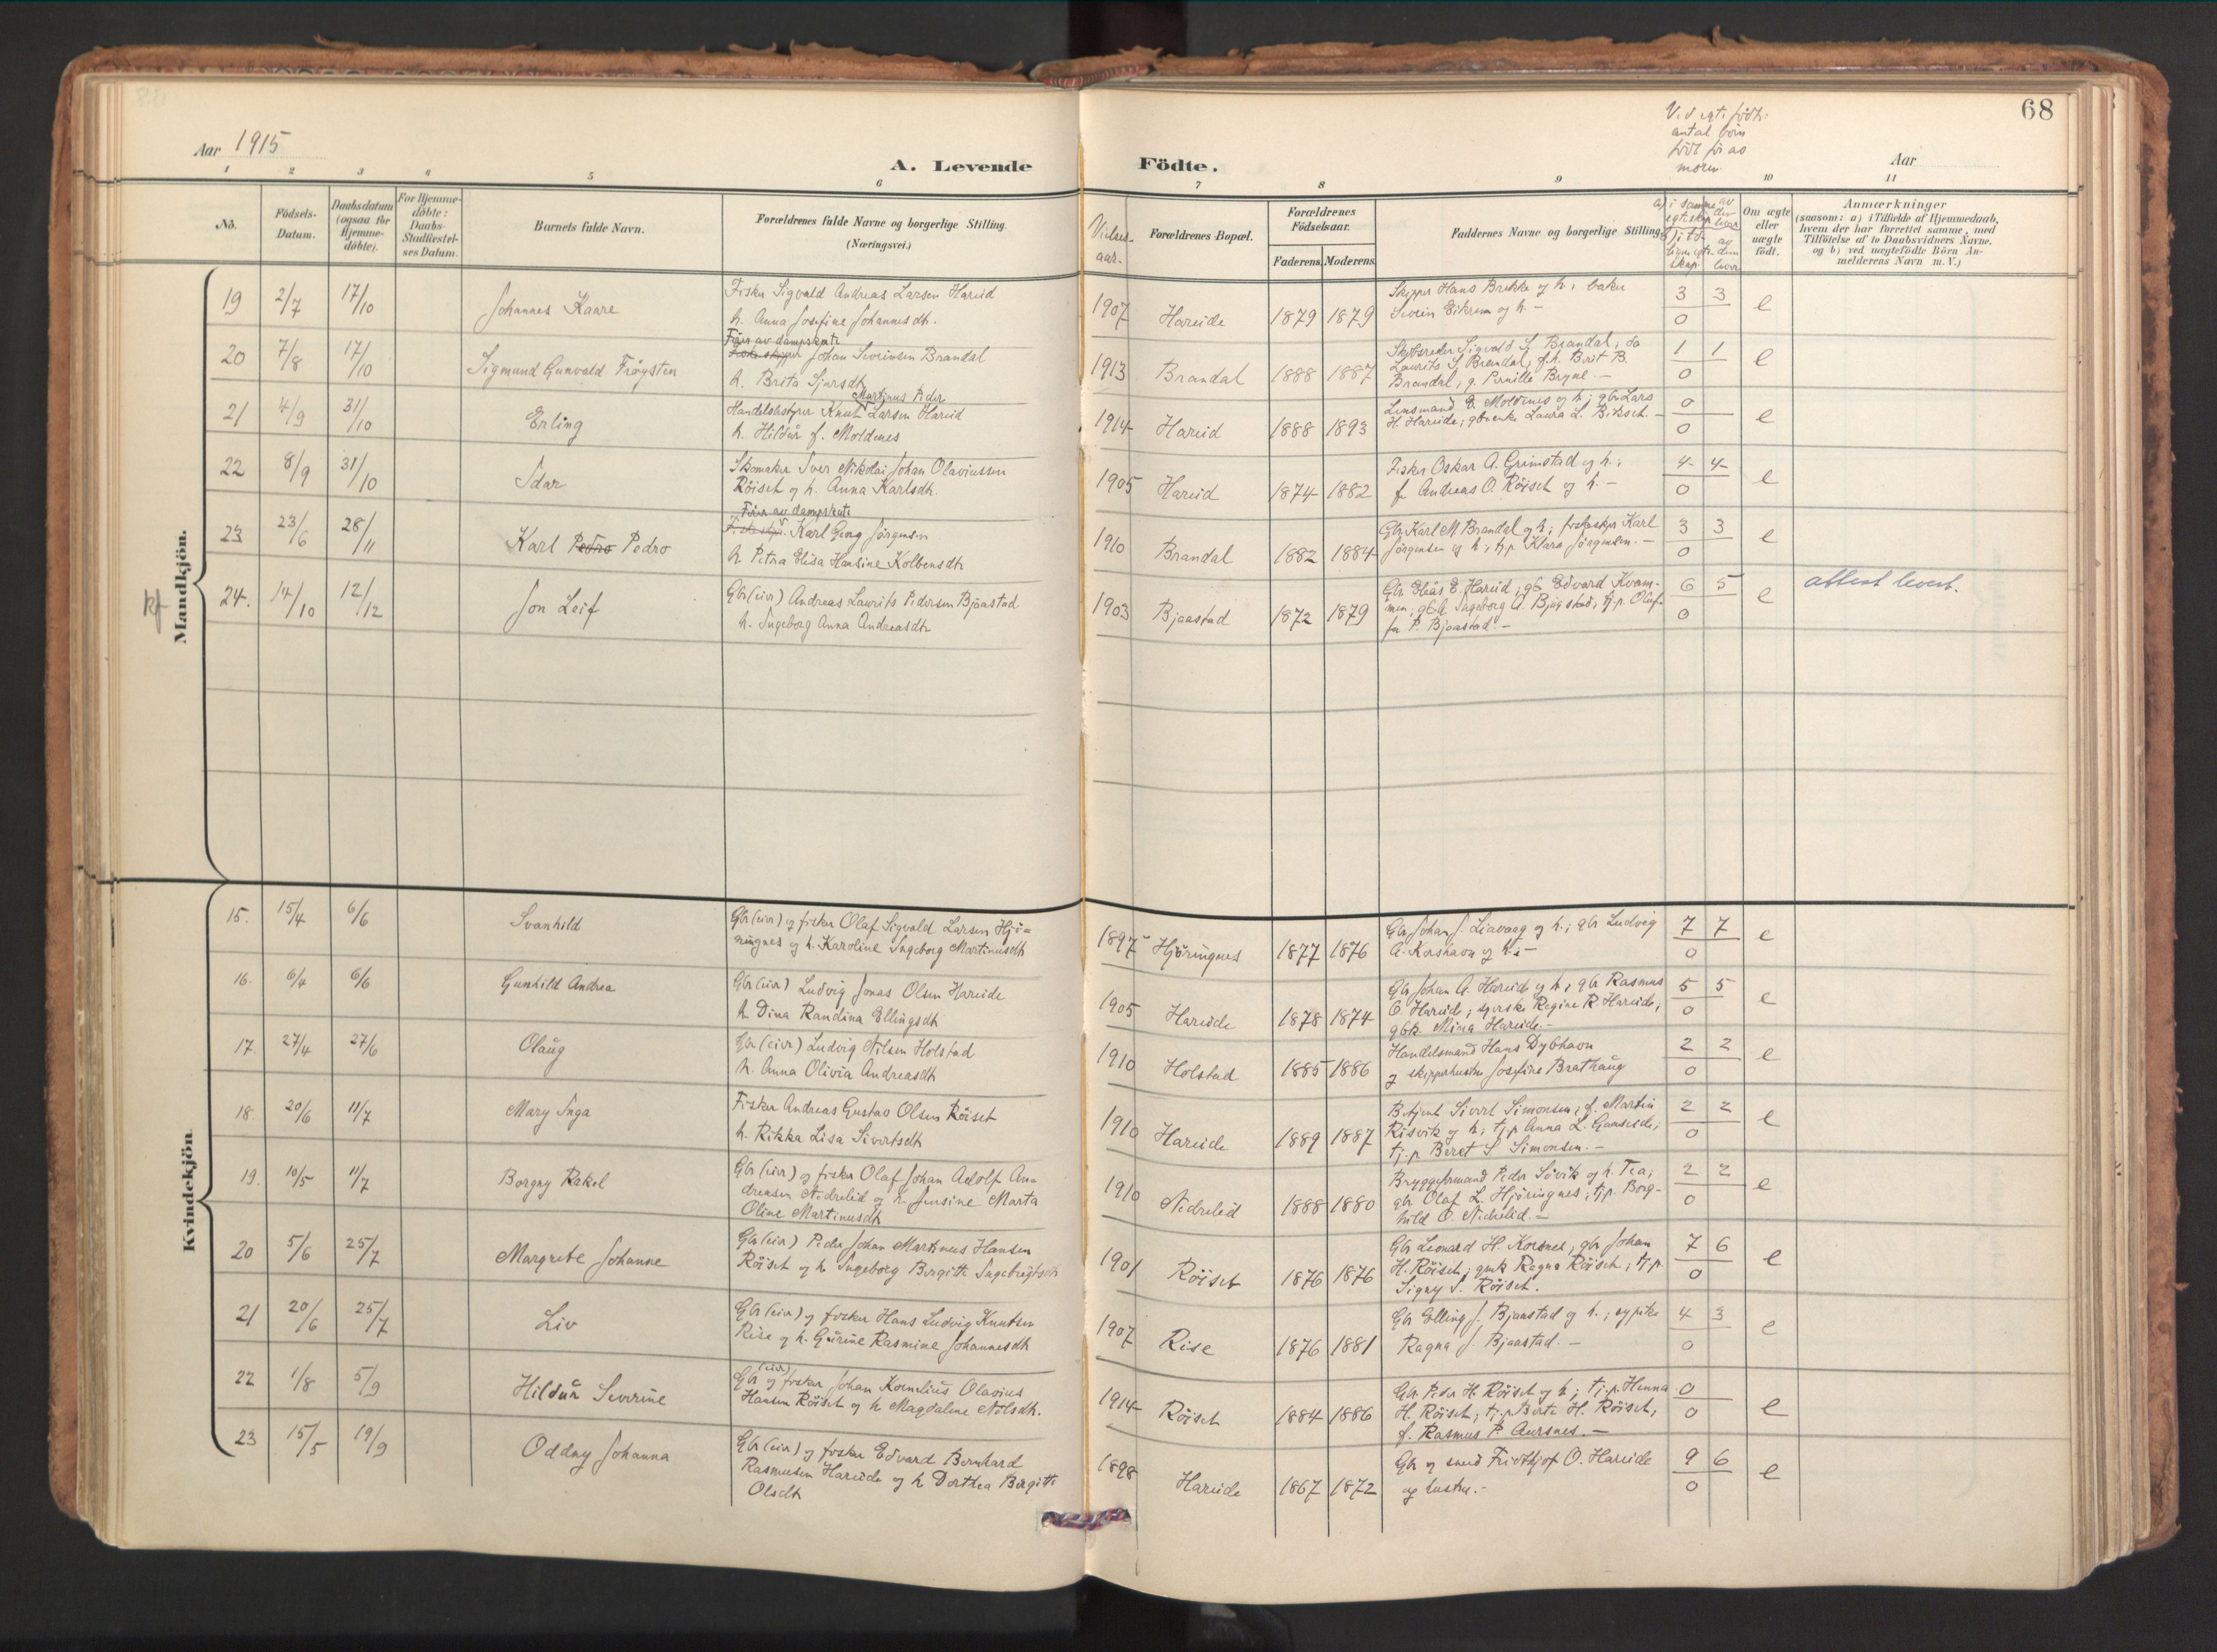 68
Aar 1915
A. Levende
Födte.
Aar
Ved egt. födt:
antal börn
födt för av
moren
1 2 3 4 5 6 7 8 9 10 11
No.
Födsels-
Datum.
Daabsdatum
(ogsaa for
Hjemme-
döbte).
For Hjemme-
döbte:
Daabs-
Stadfæstel-
ses Datum.
Barnets fulde Navn.
Forældrenes fulde Navne og borgerlige Stilling.
(Næringsvei.)
Vielses-
aar.
Forældrenes Bopæl.
Forældrenes
Födselsaar.
Faderens. Moderens.
Faddernes Navne og borgerlige Stilling.
a) i samme
egt.skap
av
Om ægte
eller
uægte
födt.
Anmærkninger
(saasom: a) i Tilfælde af Hjemmedaab,
hvem der har forrettet samme, med
Tilföielse af to Daabsvidners Navne.
og b) ved uægtefödte Börn An-
melderens Navn m. V.)
Mandkjön.
19 2/7 17/10 Johannes Kaare
Fisker Sigvald Andreas Larsen Hareid
h. Anna Josefine Johannesdh.
1907 Hareide 1879 1879
Skipper Hans Bakke og h; baker
Severin Eikrem og h. –
3 3
0
e
20 7/8 17/10 Sigmund Gunvald Fröysten
Förer av dampskute
Fiskeskipper Johan Severinsen Brandal
h. Brita Sjursdh
1913 Brandal 1888 1887
Skibsreder Sigvald S. Brandal, do
Laurits S. Brandal, f.h. Berit B.
Brandal, g. Pernille Bryne. –
1 1
0
e
21 4/9 31/10 Erling
Martinus Peder
Handelsbestyrer Knut Larsen Hareid
h. Hildur f. Moldenes
1914 Hareid 1888 1893
Lensmand E. Moldenes og h; gbr Lars
H. Hareide; gbrenke Laura L. Bikset. –
0
0
e
22 8/9 31/10 Idar
Skomaker Iver Nikolai Johan Olaviussen
Röiset og h. Anna Karlsdh.
1905 Hareid 1874 1882
Fisker Oskar A. Grimstad og h.;
f. Andreas O. Röiset og h. –
4 4
0
e
23 23/6 28/11 Karl Pedro Pedro
Förer av dampskute
Fiskeskip. Karl Georg Jörgensen
h. Petra Elisa Hansine Kolbensdh
1910 Brandal 1882 1884
Gbr Karl M Brandal og h; fiskeskpr Karl
Jörgensen og h; tj.p. Klara Jörgensen. –
3 3
0
e
24. 14/10 12/12 Jon Leif
Gbr (eier) Andreas Laurits Pedersen Bjåastad
h. Ingeborg Anna Andreasdh
1903 Bjaastad 1872 1879
Gbr Elias E. Hareid; gb Edvard Kvam-
men; gbh Ingeborg A. Bjåstad; tj.p. Oluf-
fa P. Bjaastad. –
6 5
0
e
attest levert.
Kvindekjön.
15. 15/4 6/6 Svanhild
Gbr (eier) og fisker Olaf Sigvald Larsen Hjö=
ringnes og h. Karoline Ingeborg Martinusdh
1897 Hjöringnes 1877 1876
Gbr Johan J. Liavaag og h.; gbr Ludvig
A. Korshavn og h. –
7 7
0
e
16. 6/4 6/6 Gunhild Andrea
Gbr (eier) Ludvig Jonas Olsen Hareide
h Dina Randina Ellingsdh
1905 Hareide 1878 1874
Gbr Johan A. Hareide og h; gbr Rasmus
O. Hareide, syerske Regine R. Hareide;
gbk. Mina Hareide. –
5 5
0
e
17. 27/4 27/6 Olaug
Gbr (eier) Ludvig Nilsen Holstad
h. Anna Olivia Andreasdh
1910 Holstad 1885 1886
Handelsmand Hans Dybhavn
og skipperhustru Josefine Brathaug
2 2
0
e
18. 20/6 11/7 Mary Inga
Fisker Andreas Gustav Olsen Röiset
h. Rikka Lisa Sivertsdh
1910 Hareide 1889 1887
Betjent Sivert Simonsen; f. Martin
Risvik og h; tj.p Anna L. Ganseide;
tj.p Beret S. Simonsen. –
2 2
0
e
19. 10/5 11/7 Borgny Rakel
Gbr (eier) og fisker Olaf Johan Adolf An=
dreasen Nedreleid og h. Jensine Marta
Oline Martinusdh
1910 Nedreleid 1888 1880
Bryggeformand Peder Sövik og h. Tea;
gbr Olaf L. Hjöringnes; tj.p. Borg-
hild O. Nedrelid. –
2 2
0
e
20 5/6 25/7 Margrete Johanne
Gbr (eier) Peder Johan Martinus Hansen
Röiset og h Ingeborg Bergitte Ingebrigtsdh
1901 Röiset 1876 1876
Gbr Leonard H. Korsnes; gbr Johan
H. Röiset; gmk Ragna Röiset; tj.p.
Signy S. Röiset.
7 6
0
e
21 20/6 25/7 Liv
Gbr (eier) og fisker Hans Ludvig Knutsen
Rise og h. Gurine Rasmine Johannesdh
1907 Rise 1876 1881
Gbr Elling J. Bjaastad og h.; sypike
Ragna J. Bjaastad. –
4 3
0
e
22 1/8 5/9 Hildur Severine
(eier)
Gbr og fisker Johan Kornelius Olavius
Hansen Röiset og h Magdalene Nilsdh.
1914 Röiset 1884 1886
Gbr. Peder H. Röiset og h; tj.p. Henna
H. Röiset; tj.p Berte H. Röiset;
f. Rasmus P. Aursnes. –
0
0
e
23 15/5 19/9 Oddny Johanna
Gbr (eier) og fisker Edvard Bernhard
Rasmusen Hareide og h Dorthea Bergitte
Olsdh
1898 Hareide 1867 1872
Gbr og smed Fridthjof O. Hareide
og hustru. –
9 6
0
e